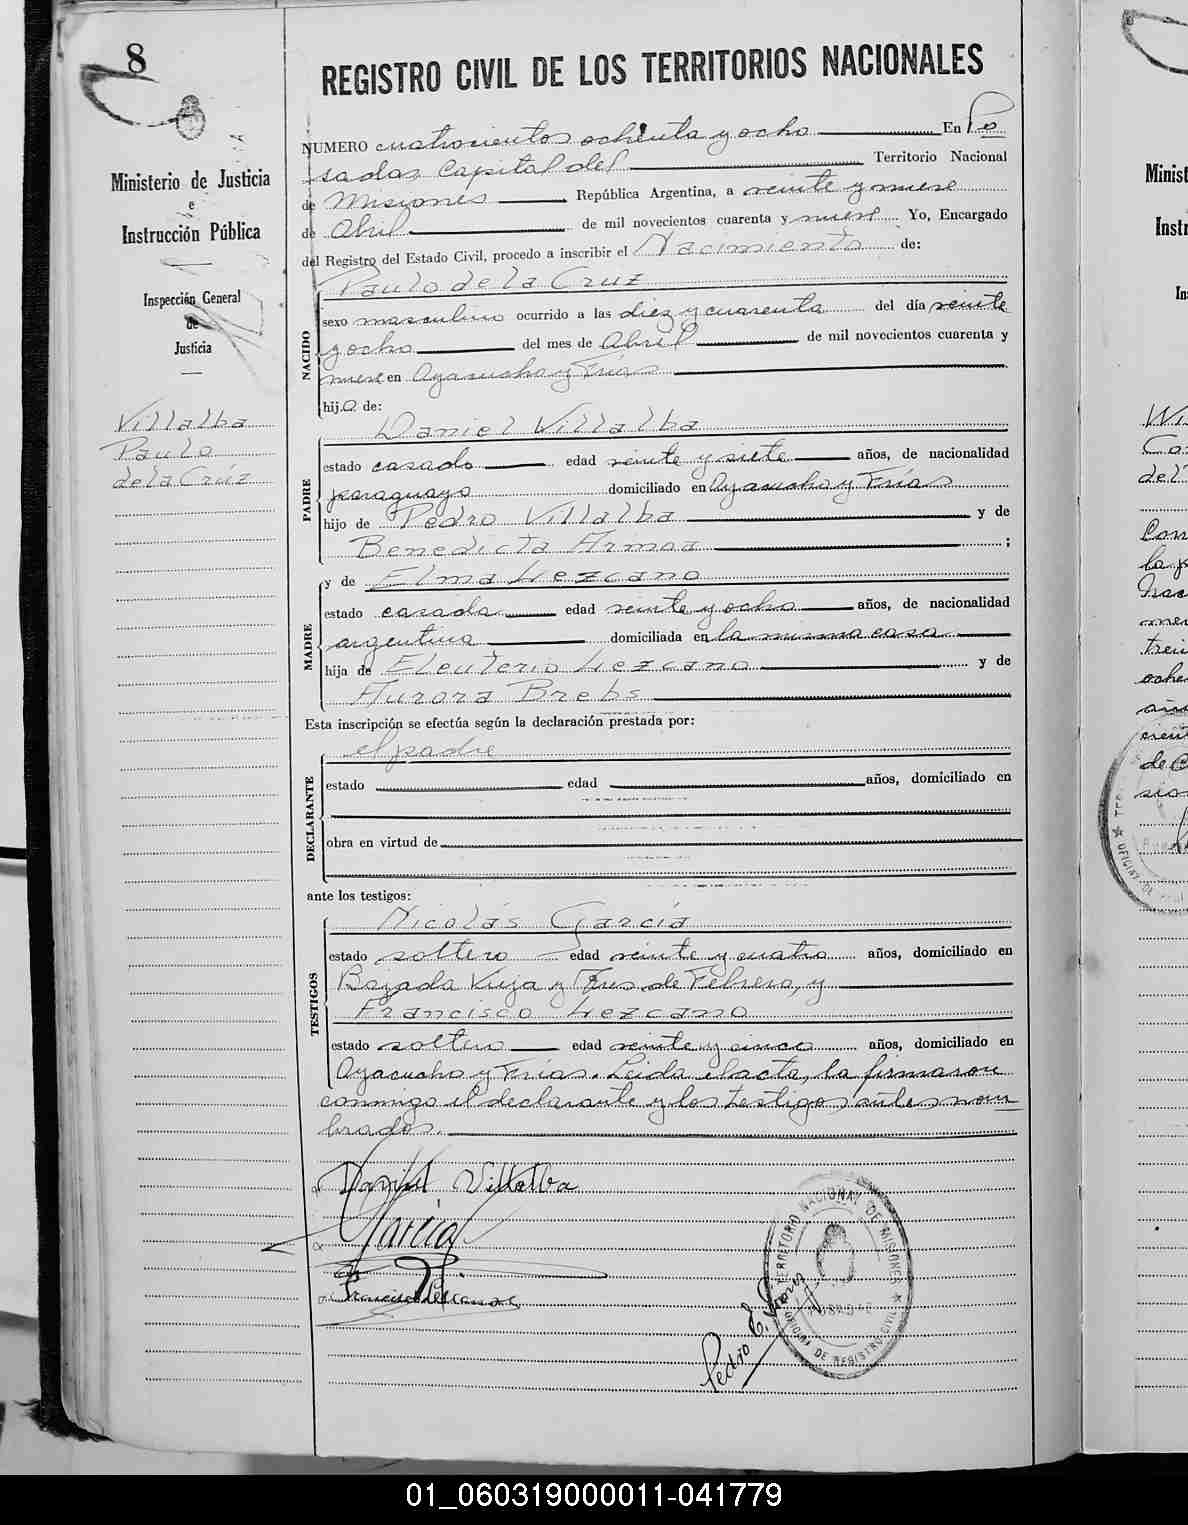 8
REGISTRO CIVIL DE LOS TERRITORIOS NACIONALES
Ministerio de Justicia
e
Instrucción Pública
Inspección General
de
Justicia
Villalba
Paulo
de la Cruz
NUMERO cuatrocientos ochenta y ocho En Po
sadas Capital del Territorio Nacional
de Misiones República Argentina, a veinte y nueve
de Abril de mil novecientos cuarenta y nueve Yo, Encargado
del Registro del Estado Civil, procedo a inscribir el Nacimiento de:
Paulo de la Cruz
NACIDO
sexo masculino ocurrido a las diez y cuarenta del día veinte
y ocho del mes de Abril de mil novecientos cuarenta y
nueve en Ayacucho y Frías
hijo de:
PADRE
Daniel Villalba
estado casado edad veinte y siete años, de nacionalidad
paraguayo domiciliado en Ayacucho y Frías
hijo de Pedro Villalba y de
Benedicta Armoa ;
MADRE
y de Elma Lezcano
estado casada edad veinte y ocho años, de nacionalidad
argentina domiciliada en la misma casa
hija de Eleuterio Lezcano y de
Aurora Brebs
Esta inscripción se efectúa según la declaración prestada por:
DECLARANTE
el padre
estado edad años, domiciliado en
obra en virtud de
ante los testigos:
TESTIGOS
Nicolás García
estado soltero edad veinte y cuatro años, domiciliado en
Bajada Vieja y Tres de Febrero, y
Francisco Lezcano
estado soltero edad veinte y cinco años, domiciliado en
Ayacucho y Frías. Leida el acta, la firmaron
conmigo el declarante y los testigos antes nom
brados.
Daniel Villalba
García
Francisco Lezcano
Pedro E.
TERRITORIO NACIONAL DE MISIONES
POSADAS
OFICINA DE REGISTRO CIVIL
01_060319000011-041779